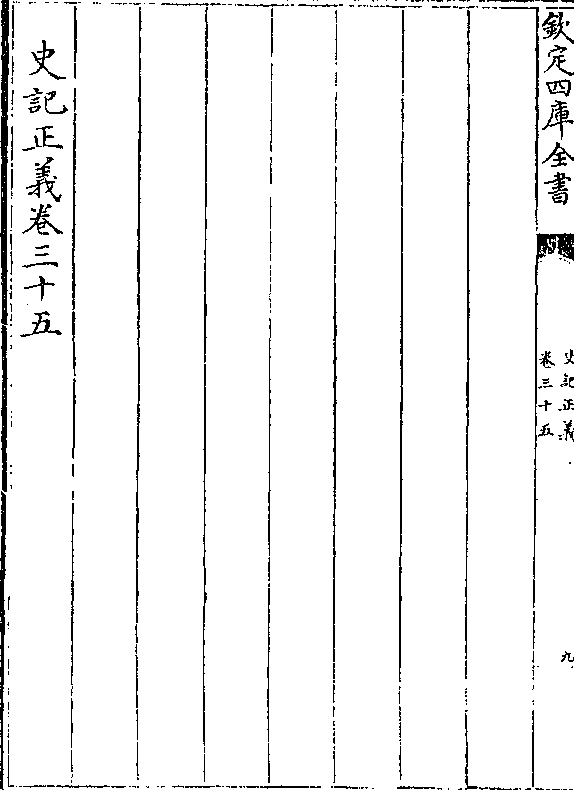 欽定四庫全書
史記正義
卷三十五
九
史記正義卷三十五